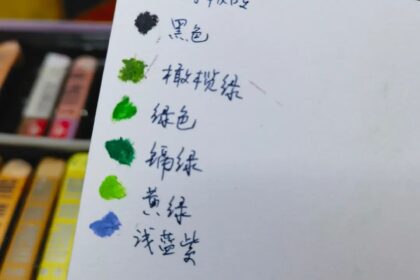 黑色
橄榄绿
绿色
镉绿
黄绿
浅蓝紫